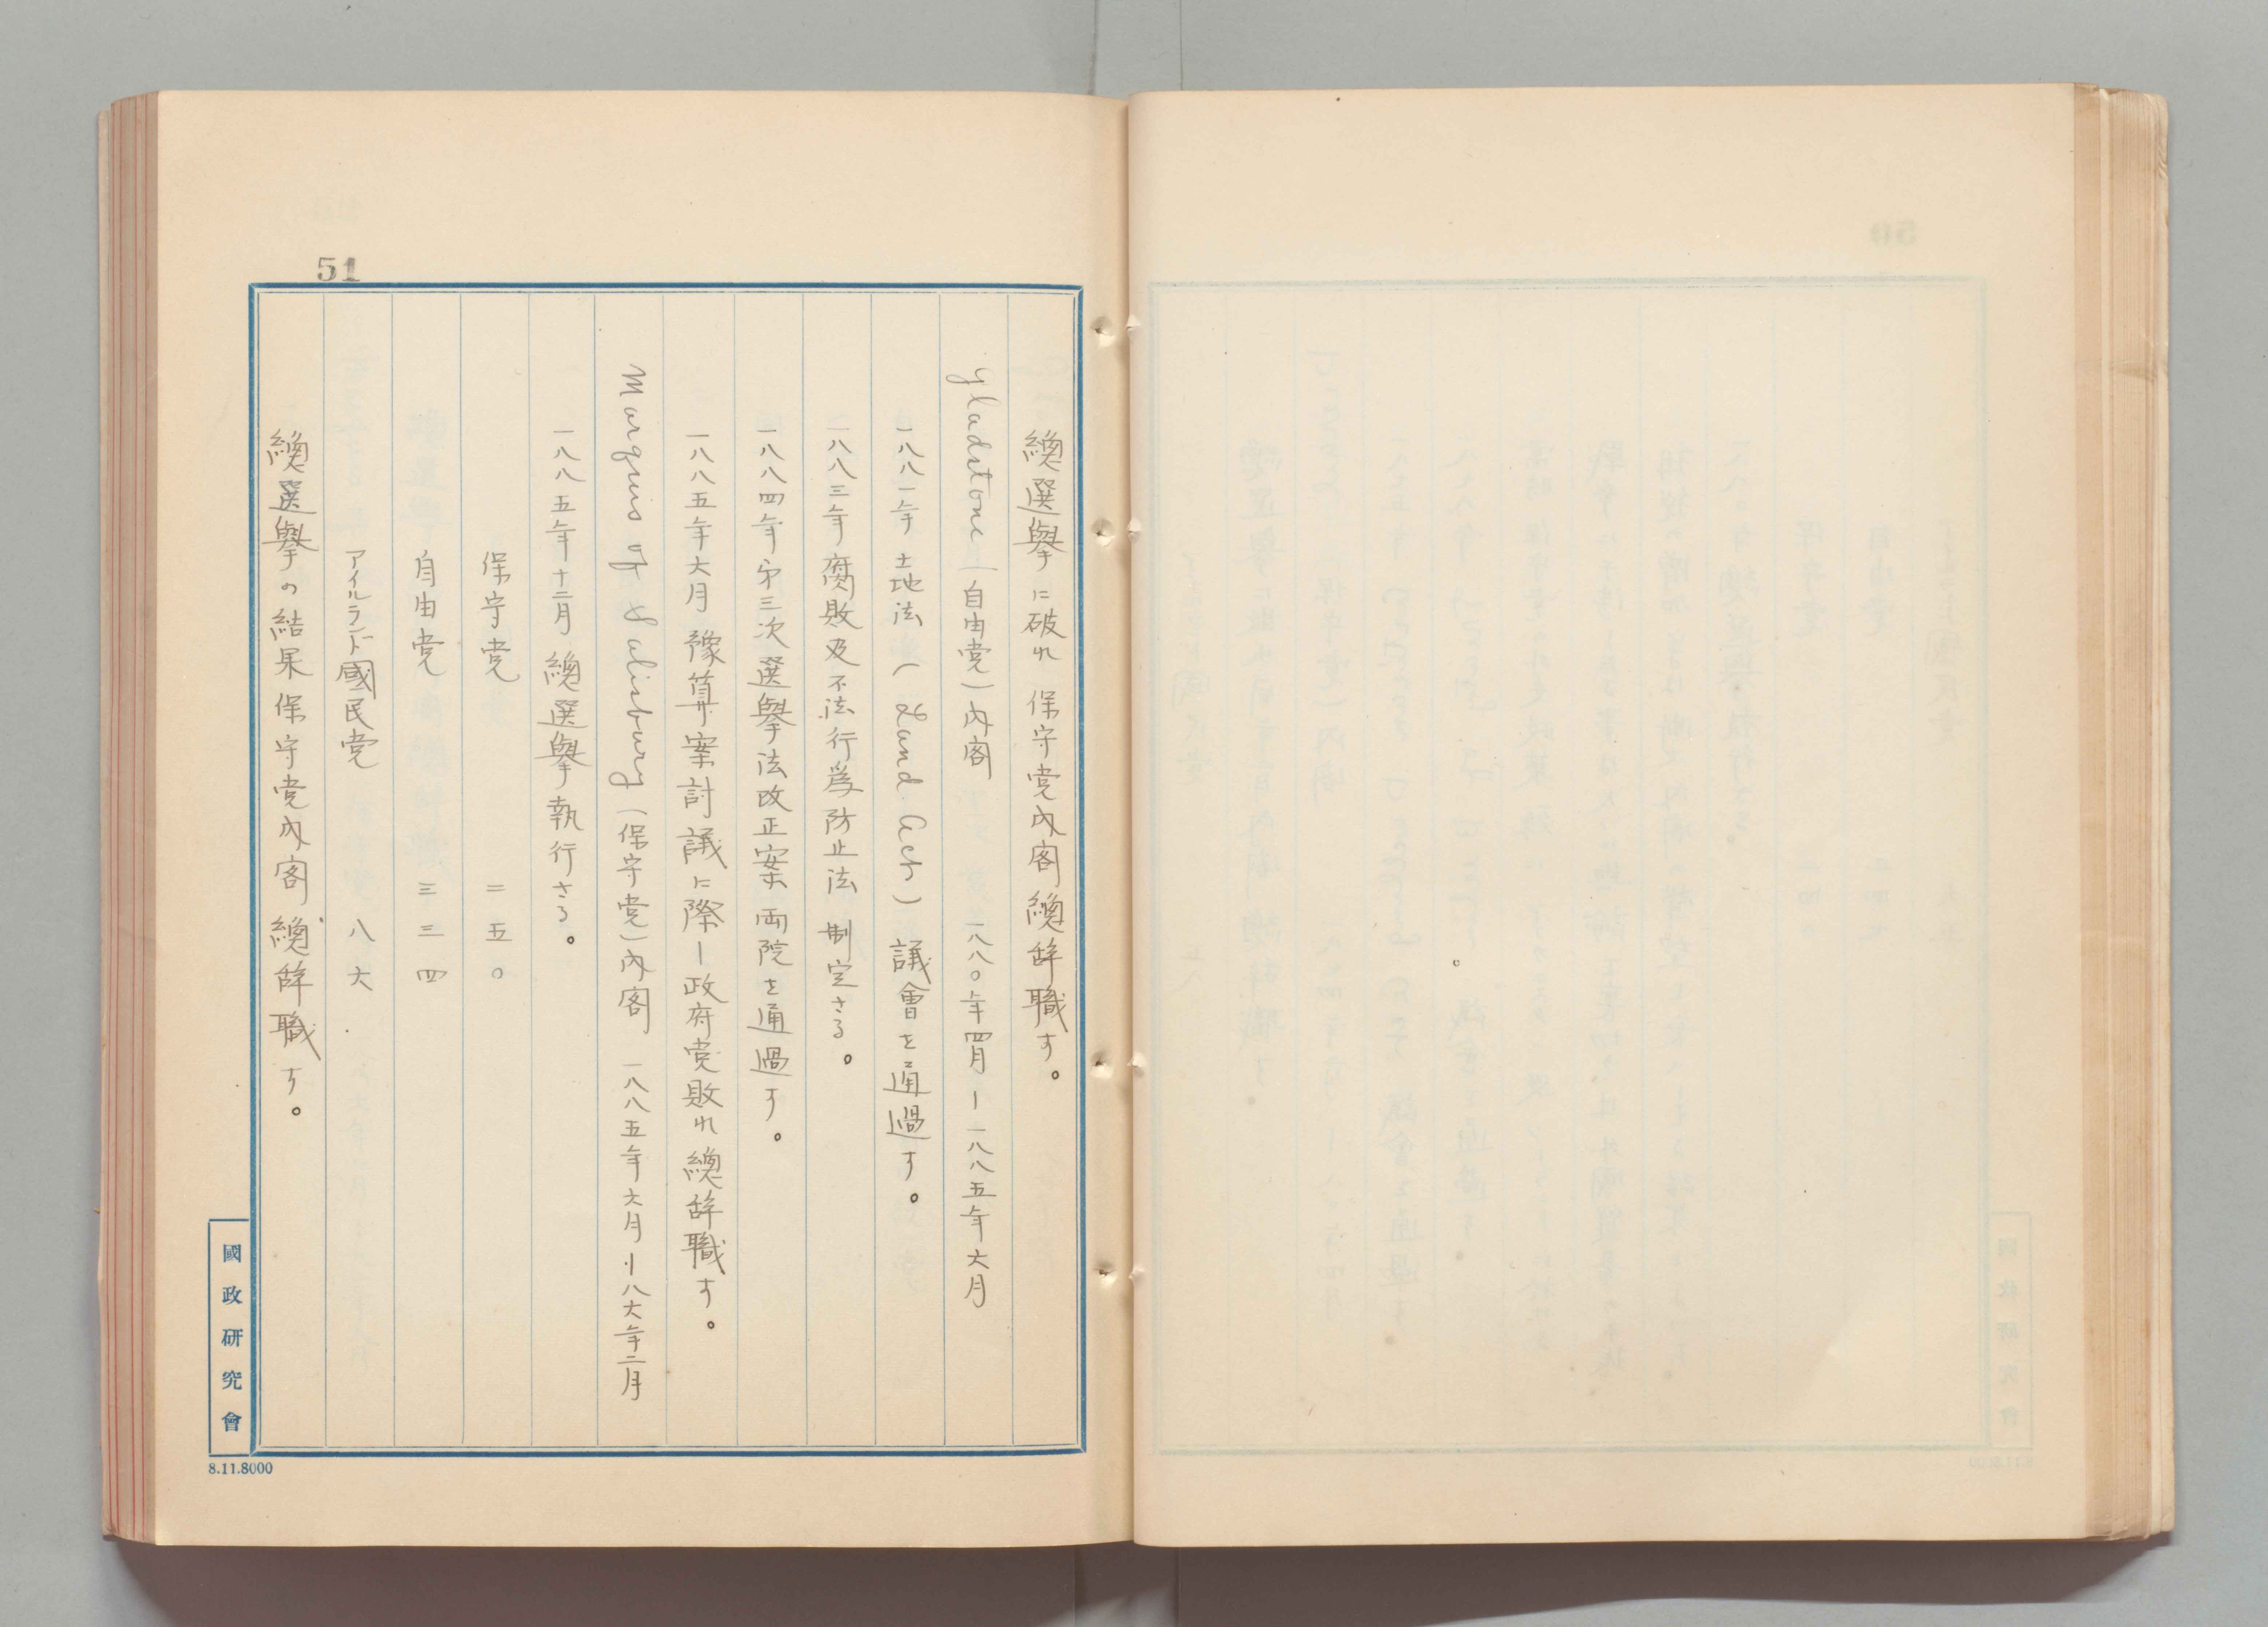 51
總選擧に破れ保守党内閣總辞職す。
Gladstone(自由党)内閣 一八八〇年四月ー一八八五年六月
一八八一年土地法(Land Act)議會を通過す。
一八八三年腐敗及不法行爲防止法制定さる。
一八八四年第三次選擧法改正案両院を通過す。
一八八五年六月豫算案討議に際し政府党敗れ總辞職す。
Marquis of Salisbury(保守党)内閣 一八八五年六月ー一八八六年二月
一八八五年十二月總選擧執行さる。
保守党 二五〇
自由党 三三四
アイルランド國民党 八六
總選擧の結果保守党内閣總辞職す。
國政研究會
8.11.8000